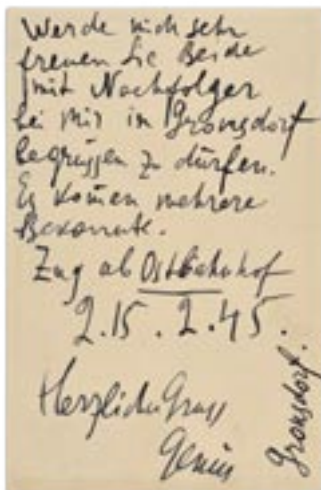 Werde mich sehr
freuen Sie Beide
mit Nachfolger
bei Mir in Gronsdorf
begrüssen zu dürfen.
Es komen mehrere
Bekannte.
Zug ab Ostbahnhof
2.15. 2.45.
Herzlichen Gruss
Gronsdorf.